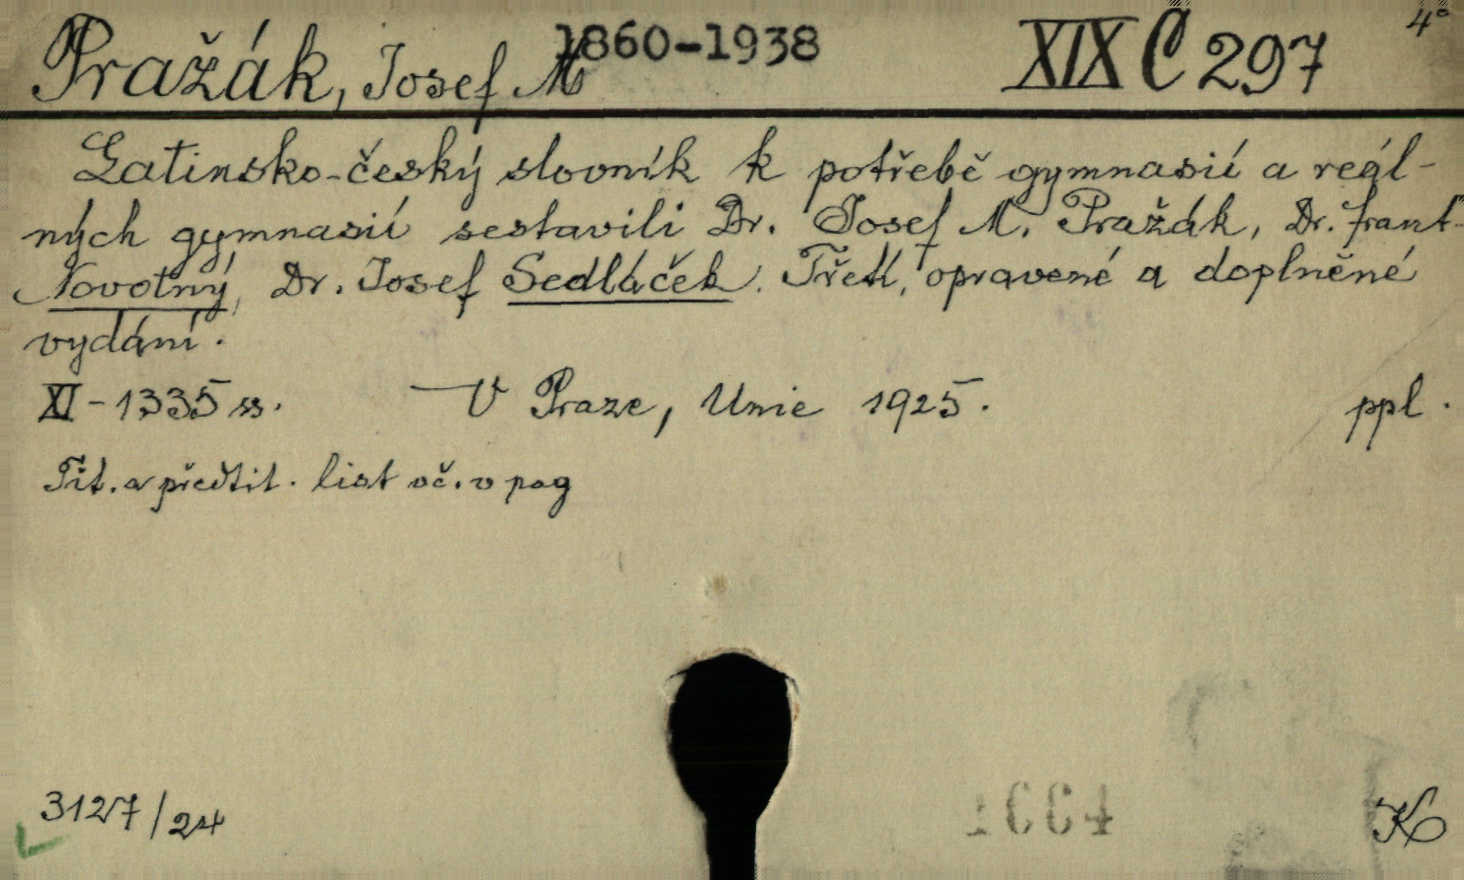 Pražák, Josef M 1860-1938 XIX C 297 4°
Latinsko-český slovník k potřebě gymnasií a reál-
ných gymnasií sestavili Dr. Josef M. Pražák, Dr. Frant.
Novotný, Dr. Josef Sedláček. Třetí, opravené a doplněné
vydání.
XI-1335 ss. V Praze, Unie 1925. ppl.
Tit. a předtit. list oč. v pag
3127/24